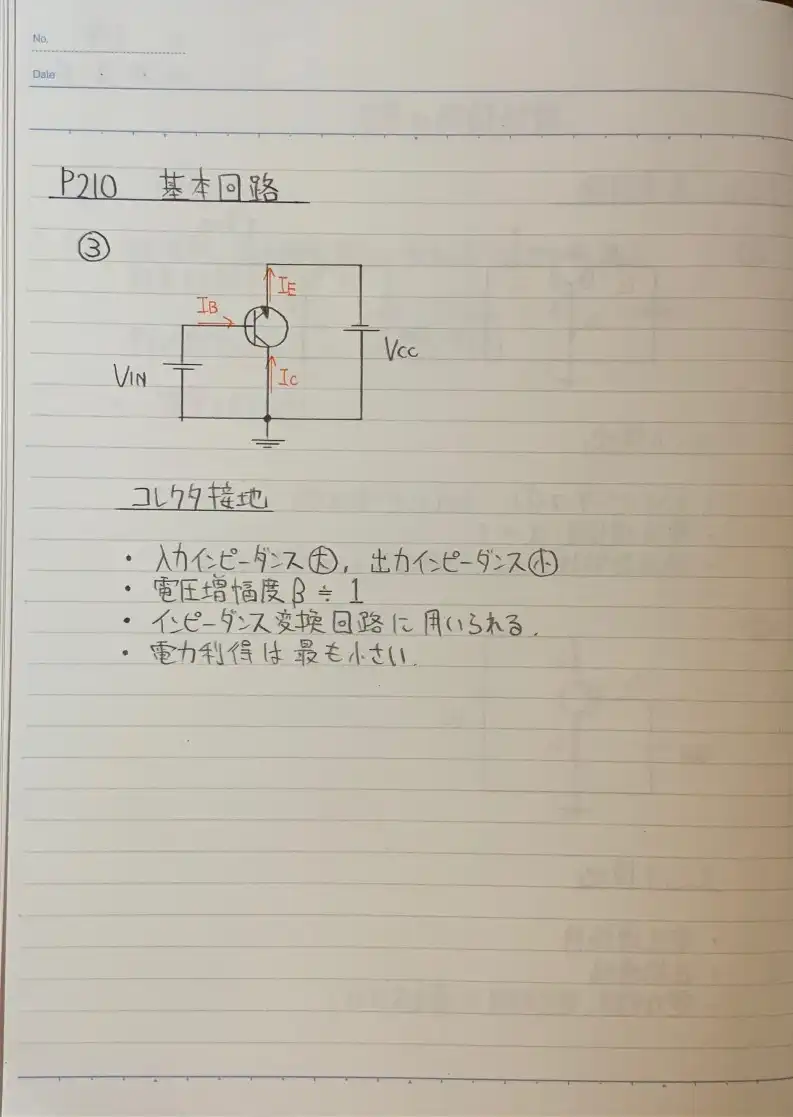 No.
Date
P210 基本回路
③
IB
IE
VIN
IC
VCC
コレクタ接地
・ 入力インピーダンス大, 出力インピーダンス小
・ 電圧増幅度β≒1
・ インピーダンス変換回路に用いられる.
・ 電力利得は最も小さい.